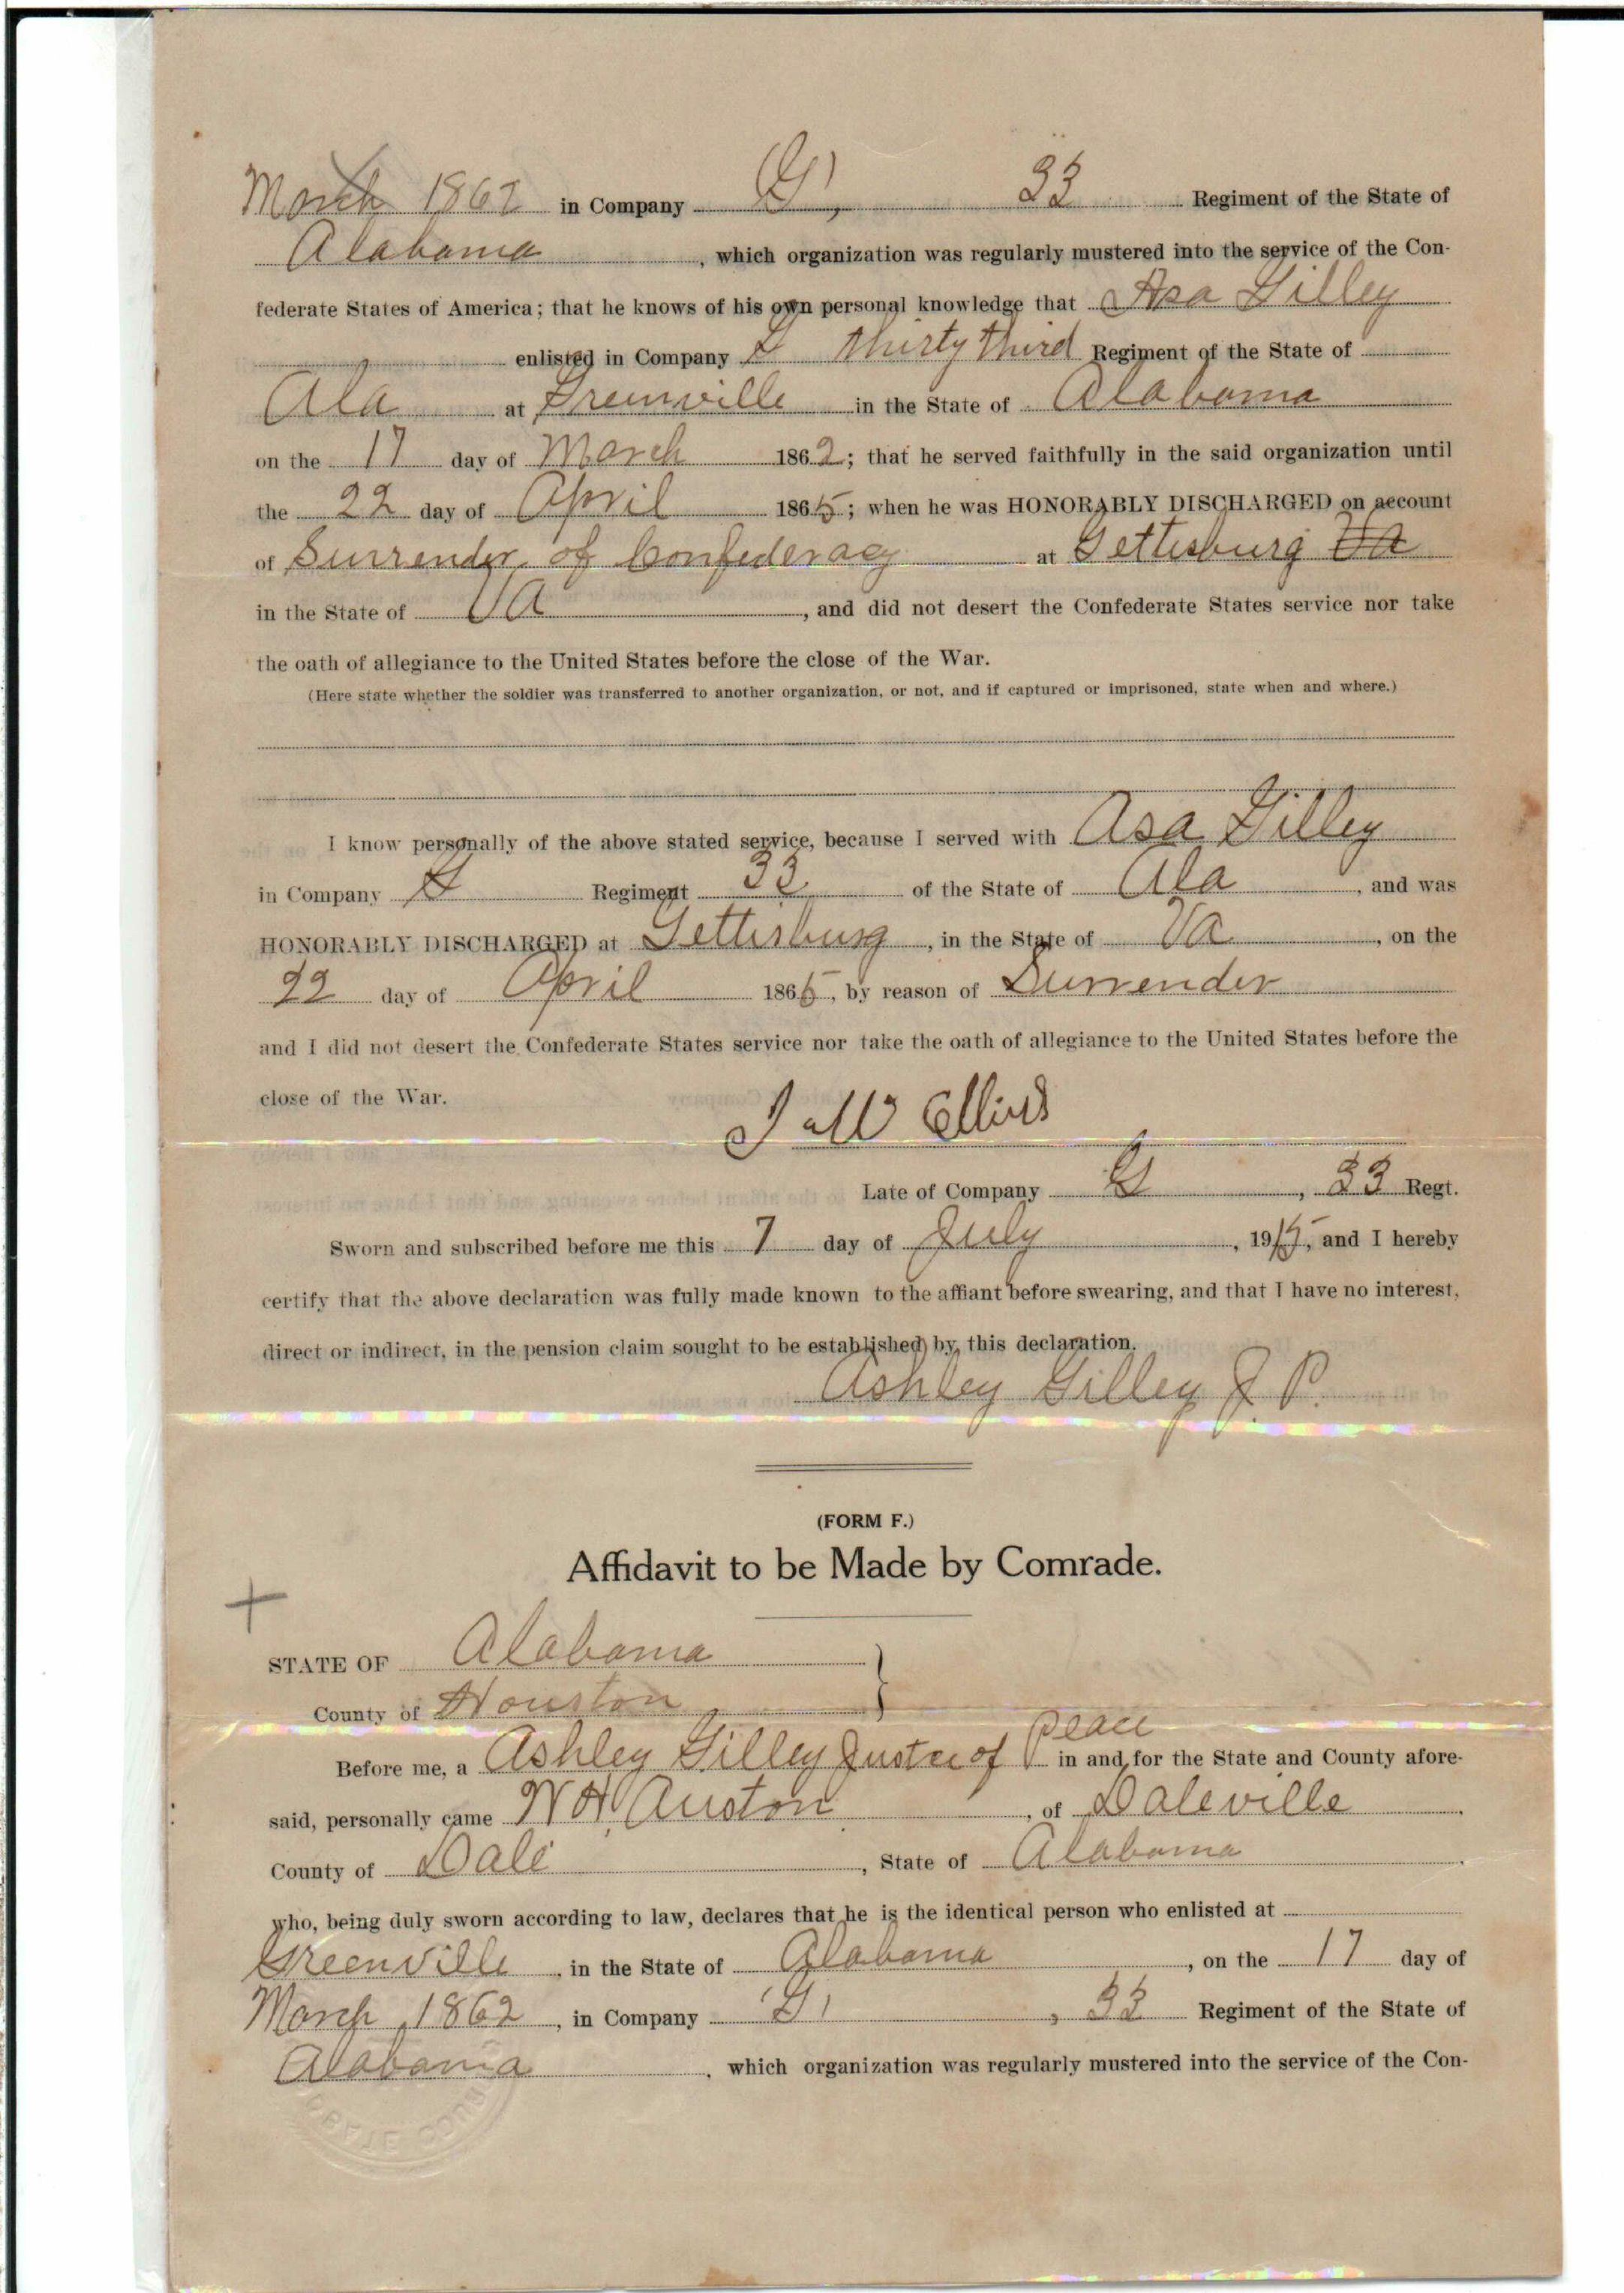 March 1862 in Company "G", 33 Regiment of the State of
Alabama, which organization was regularly mustered into the service of the Con-
federate States of America; that he knows of his own personal knowledge that Asa Gilley
enlisted in Company G Thirty Third Regiment of the State of
Ala at Greenville in the State of Alabama
on the 17 day of March 1862; that he served faithfully in the said organization until
the 22 day of April 1865; when he was HONORABLY DISCHARGED on account
of Surrender of Confederacy at Gettisburg Va
in the State of Va, and did not desert the Confederate States service nor take
the oath of allegiance to the United States before the close of the War.
(Here state whether the soldier was transferred to another organization, or not, and if captured or imprisoned, state when and where.)
I know personally of the above stated service, because I served with Asa Gilley
in Company G Regiment 33 of the State of Ala, and was
HONORABLY DISCHARGED at Gettisburg, in the State of Va, on the
22 day of April 1865, by reason of Surrender
and I did not desert the Confederate States service nor take the oath of allegiance to the United States before the
close of the War.
Late of Company G, 33 Regt.
Sworn and subscribed before me this 7 day of July, 1915, and I hereby
certify that the above declaration was fully made known to the affiant before swearing, and that I have no interest,
direct or indirect, in the pension claim sought to be established by this declaration.
Ashley Gilley J. P.
(FORM F.)
Affidavit to be Made by Comrade.
STATE OF Alabama
County of Houston
Before me, a Ashley Gilley Justce of Peace in and for the State and County afore-
said, personally came W H Auston, of Daleville
County of Dale, State of Alabama
who, being duly sworn according to law, declares that he is the identical person who enlisted at
Greenville, in the State of Alabama, on the 17 day of
March, 1862, in Company "G", 33 Regiment of the State of
Alabama, which organization was regularly mustered into the service of the Con-